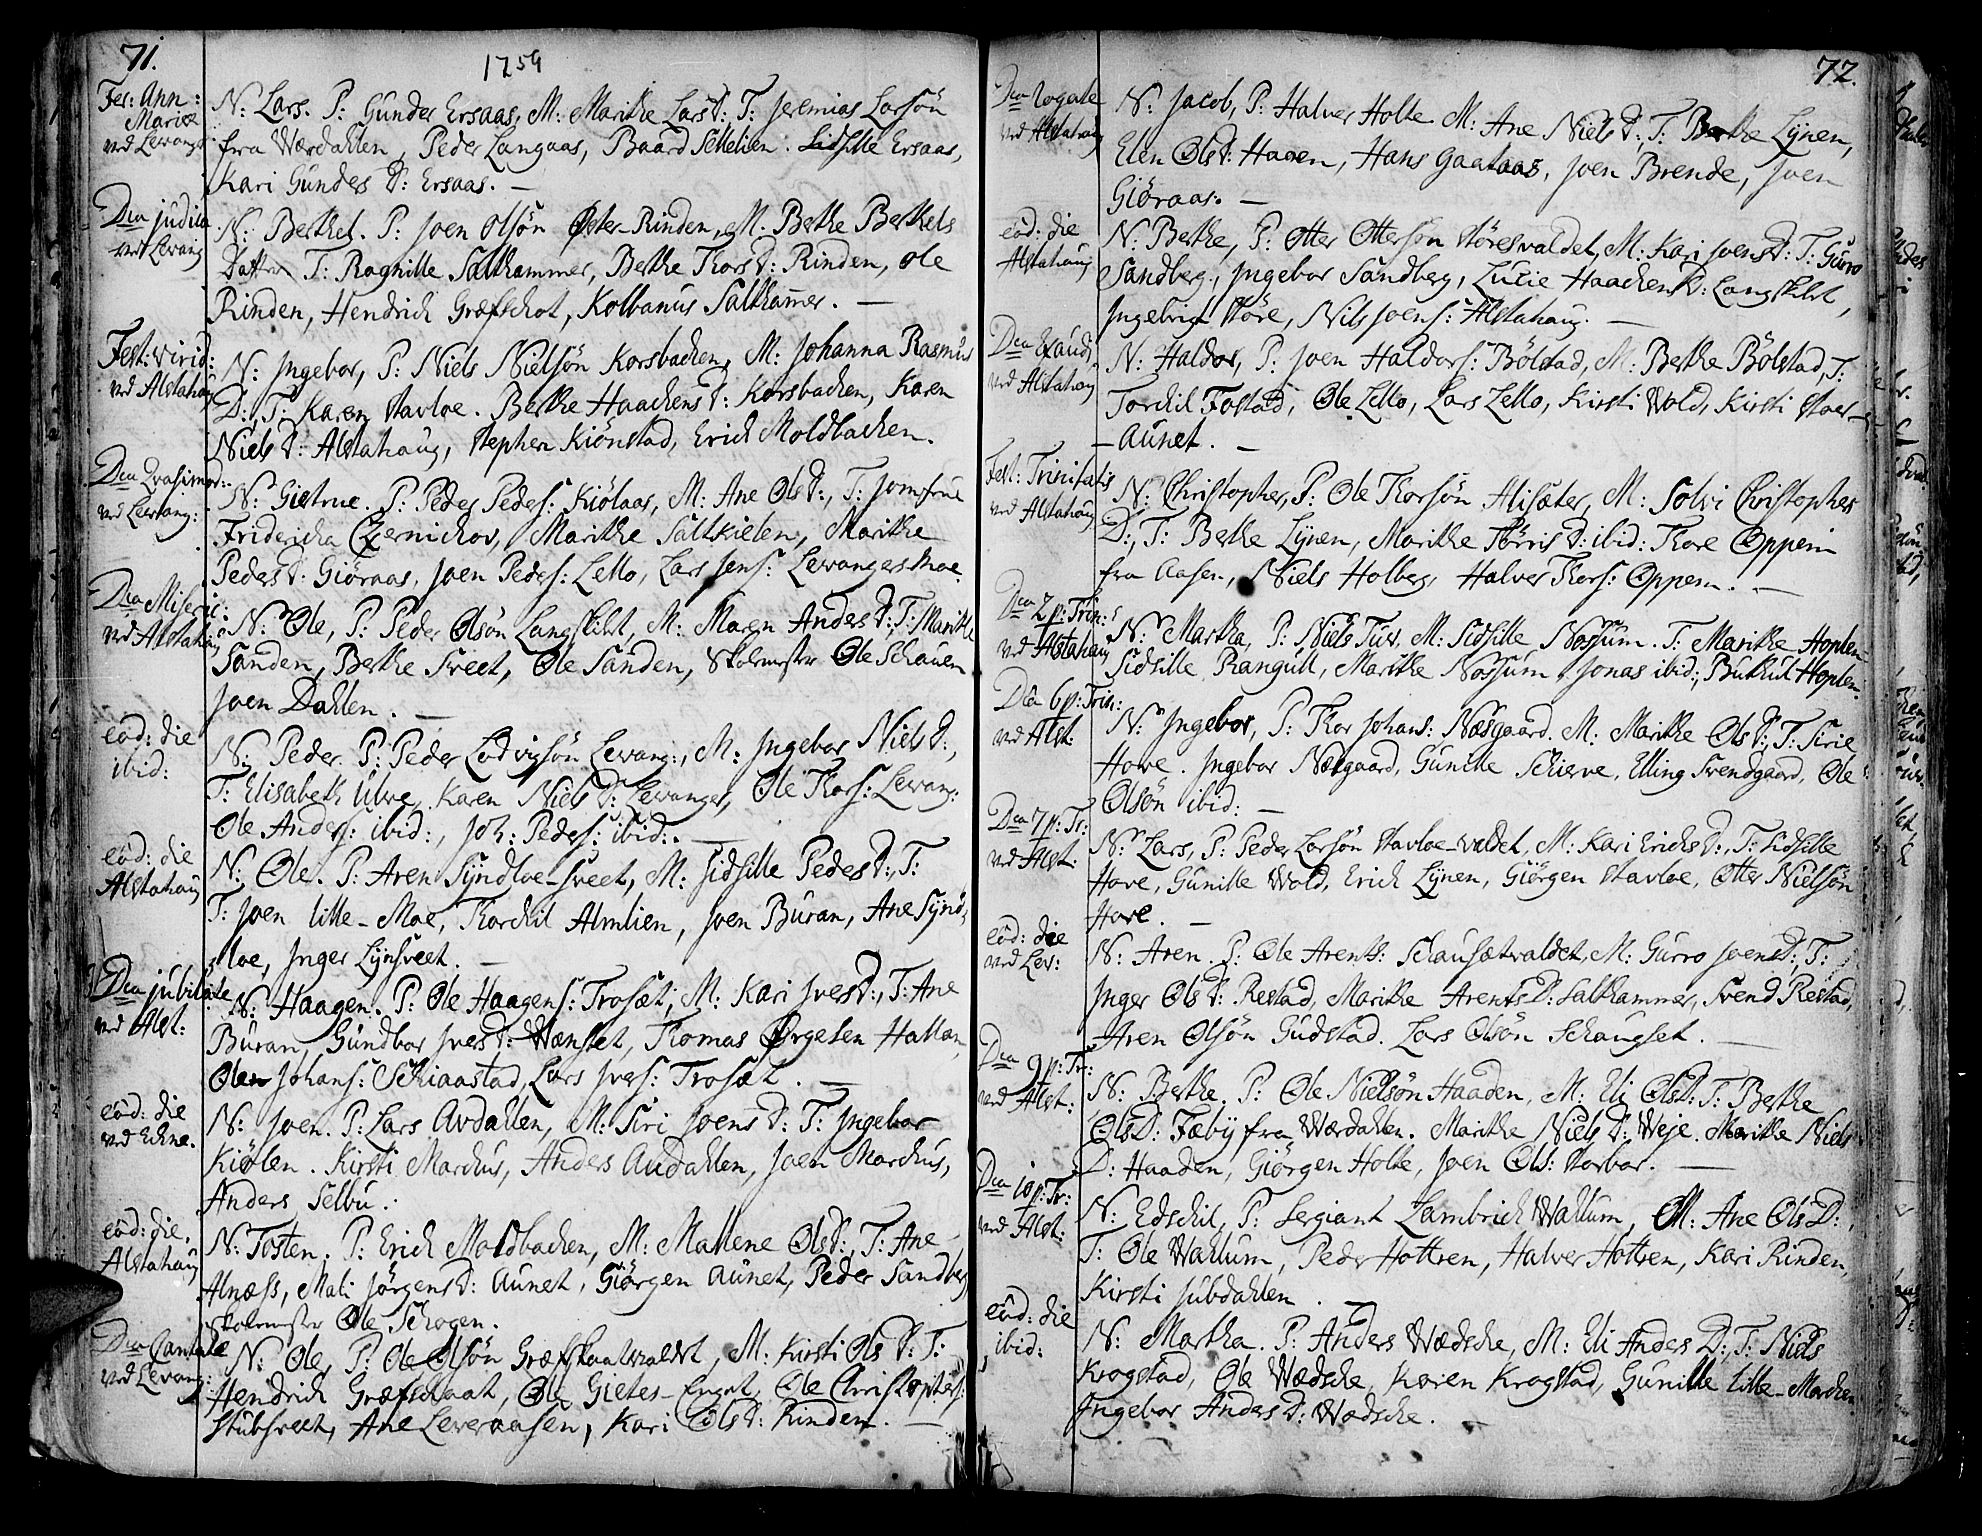 71.
1759
Fes: Ann:
Mariæ
ved Levang:
N: Lars. P: Gunder Ersaas, M: Marithe Lars D: T: Jeremias Larsön
fra Værdahlen, Peder Langaas, Baard Sellelien. Sidsille Ersaas,
Kari Gundes D: Ersaas. —
Dca judica
ved Levang
N: Berthel. P: Joen Olsön Öster-Rinden, M: Berthe Berthels
Datter T: Ragnille Saltkammer, Berthe Thors D: Rinden, Ole
Rinden, Hendrich Græfschot, Kolbanus Saltkam̄er. —
Fest: virid:
ved Alstahaug
N: Ingebor, P: Niels Nielsön Korsbachen, M: Johanna Rasmus
D:, T: Karen Stavloe. Berthe Haachens D: Korsbachen, Karen
Niels D: Alstahaug, Stephen Kiönstad, Erich Moldbachen.
Dca Qvasimod:
ved Levang:
N: Gietrue. P: Peder Peders: Kiölaas, M: Ane Ols D:, T: Jomfrue
Fridericha Czernichov, Marithe Saltkielen, Marithe
Peders D: Giöraas, Joen Peders: Zello, Lars Jens: Levangersmoe.
Dca Miseric:
ved Alstahaug
N: Ole, P: Peder Olsön Langskilet, M: Maren Anders D:, T: Marithe
Sanden, Berthe Sveet, Ole Sanden, Skolemester Ole Schauen
Joen Dahlen. —
eod: die
ibid:
N: Peder. P: Peder Lodvigsön Levang:, M: Ingebor Niels D:,
T: Elisabeth Ulve, Karen Niels D: Levanger, Ole Thors: Levang:
Ole Anders: ibid:, Joh: Peders: ibid:. —
eod: die
Alstahaug
N: Ole. P: Aren Syndloe-sveet, M: Sidsille Peders D:, T:
T: Joen lille-Moe, Thorchil Almlien, Joen Buran, Ane Synd,
loe, Inger Lynsveet. —
Dca jubilate
ved Alst:
N: Haagen. P: Ole Haagens: Trosæt, M: Kari Jvers D:, T: Ane
Buran, Gundbor Jvers D: Wænset, Thomas Örgelen Hallan,
Ole Johans: Schiaastad, Lars Jvers: Trosæt. —
eod: die
ved Echne.
N: Joen. P: Lars Avdahlen, M: Siri Joens D: T: Ingebor
Kiölen. Kirsti Marchus, Anders Audahlen, Joen Marchus,
Anders Selbu.
eod: die.
Alstahaug
N: Tosten. P: Erich Moldbachen, M: Mallene Ols D:, T: Ane
Alnæss, Mali Jörgens D: Aunet, Giörgen Aunet, Peder Sandberg
Skolemester Ole Schogen.
Dca Cantate
ved Levang:
N: Ole, P: Ole Olsön Græfskaatvaldet, M: Kirsti Ols D: T:
Hendrich Græfschaat, Ole Gietes-Enget, Ole Christophers:
Stubsveet, Ane Leveraasen, Kari Ols D: Rinden. —
72.
Dca rogate
ved Alstahaug
N: Jacob, P: Halver Holte M: Ane Niels D:, T: Berthe Lynen,
Elen Ols D: Haaen, Hans Gaataas, Joen Brende, Joen
Giöraas. —
eod: die
Alstahaug
N: Berthe, P: Otter Ottersön Störesvaldet, M: Kari Joens D: T: Guro
Sandberg, Ingebor Sandberg, Lucie Haachens D: Langskilet,
Ingebrigt Störe, Nils Joens: Alstahaug. —
Dca Exaudj
ved Alstahaug
N: Haldor, P: Joen Haldors: Bölstad, M: Berthe Bölstad, T:
Torchil Fostad, Ole Zello, Lars Zello, Kirsti Wold, Kirsti Stoer-
-Aunet. —
Fest: Trinitatis
ved Alstahaug
N: Christopher, P: Ole Thorsön Alisæter, M: Solvi Christophers
D:, T: Berthe Lynen, Marithe Törris D: ibid: Thore Oppem
fra Aasen, Niels Holberg, Halver Thors: Oppem. —
Dca 2 p: Trin:
ved Alstahaug
N: Martha, P: Niels Tuv, M: Sidsille Nossum. T: Marithe Hoplen
Sidsille Rangull, Marithe Nossum, Jonas ibid:, Buthul Hoplen.
Dca 6 p: Trin:
ved Alst:
N: Ingebor, P: Thor Johans: Næsgaard. M: Marithe Ols D:, T: Sirie
Hove. Ingebor Næsgaard, Gunille Schierve, Elling Svendgaard, Ole
Olsön ibid: —
Dca 7 p: Tr:
ved Alst:
N: Lars, P: Peder Larsön Stavloe-valdet, M: Kari Erichs D:, T: Sidsille
Hove, Gunille Wold, Erich Lynen, Giörgen Stavloe, Otter Nielsön
Hove. —
eod: die
ved Lev:
N: Aren. P: Ole Arents: Schausætvaldet, M: Gurro Joens D:, T:
Inger Ols D: Restad, Marithe Arents D: Saltkammer, Svend Restad,
Aren Olsön Gudstad. Lars Olsön Schaugset. —
Dca 9 p: Tr:
ved Alst:
N: Berthe. P: Ole Nielsön Haaden, M: Eli Ols D: T: Berthe
Ols D: Fæby fra Wærdahlen. Marithe Niels D: Weje. Marithe Niels
D: Haaden, Giörgen Holte, Joen Ols: Storbor. —
Dca 10 p: Tr:
ved Alst:
N: Edschil, P: Sergiant Lambrich Wallum, M: Ane Ols D:
T: Ole Wallum, Peder Hottren, Halver Hottren, Kari Rinden,
Kirsti Julsdahlen. —
eod: die
ibid:
N: Martha. P: Anders Wædsche, M: Eli Anders D:, T: Niels
Krogstad, Ole Wædsche, Karen Krogstad, Gunille lille-Marchen
Ingebor Anders D: Wædsche. —